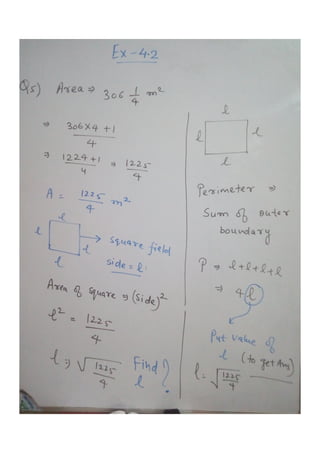 Ex-4.2
Q5) Area ⇒ 306 1/4 m²
⇒ 306×4 +1 / 4
⇒ 1224+1 / 4 ⇒ 1225 / 4
A = 1225 / 4 m²
l
l l
l
→ square field
side = l.
Area of square ⇒ (side)²
l² = 1225 / 4
l ⇒ √1225 / 4 Find l ?
l
l l
l
Perimeter ⇒
Sum of outer
boundary
P ⇒ l+l+l+l
⇒ 4l
Put value of
l (to get Ans)
l = √1225 / 4